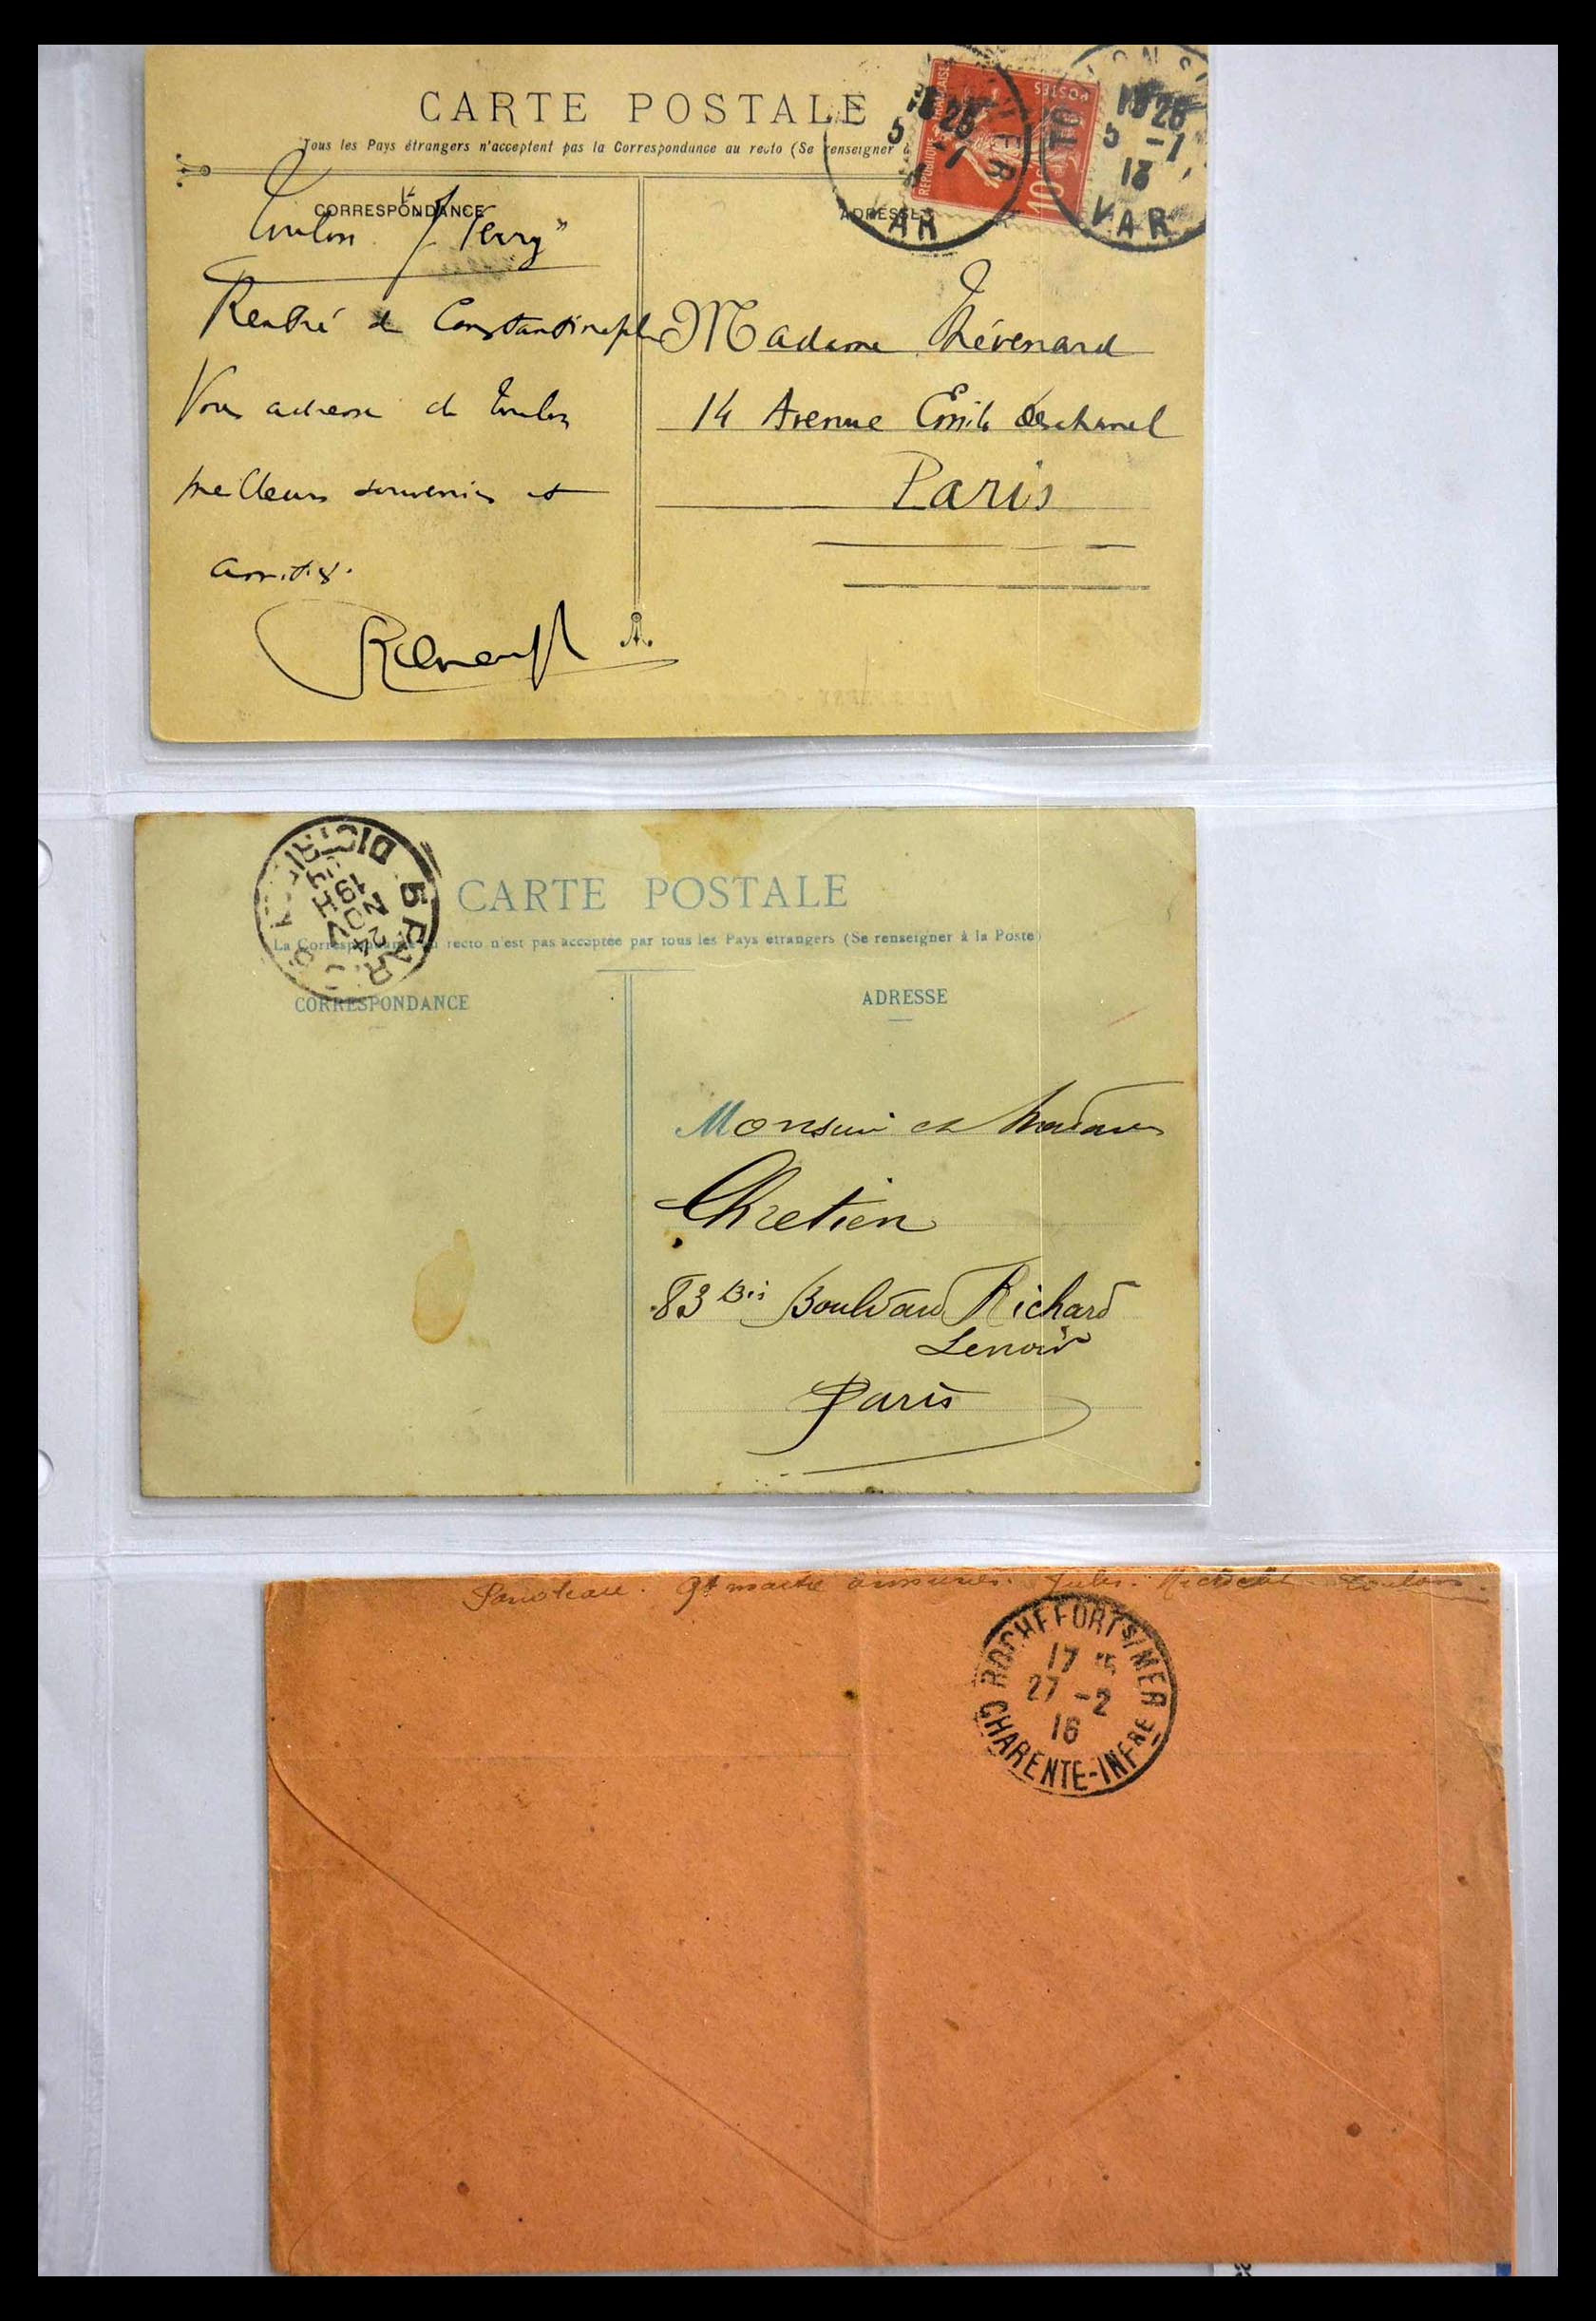 CARTE POSTALE
Tous les Pays étrangers n'acceptent pas la Correspondance au recto (Se renseigner
RÉPUBLIQUE FRANÇAISE
POSTES
10c
18 25
5 -1
VAR
TOULON
18 25
5 -1
13
VAR
CORRESPONDANCE
ADRESSE
Toulon "J Ferry"
Rentré de Constantinople
Vous adresse de Toulon
meilleurs souvenirs et
amitiés.
A.
Madame Thévenard
14 Avenue Emile Deschanel
Paris
DISTRIB
5 PAR
24
NOV
19
CARTE POSTALE
La Correspondance au recto n'est pas acceptée par tous les Pays étrangers (Se renseigner à la Poste)
CORRESPONDANCE
ADRESSE
Monsieur et Madame
Chretien
83 Bis Boulevard Richard
Lenoir
Paris
Jules Michelet Toulon.
ROCHEFORT S/MER
17
27 -2
16
CHARENTE-INFRE